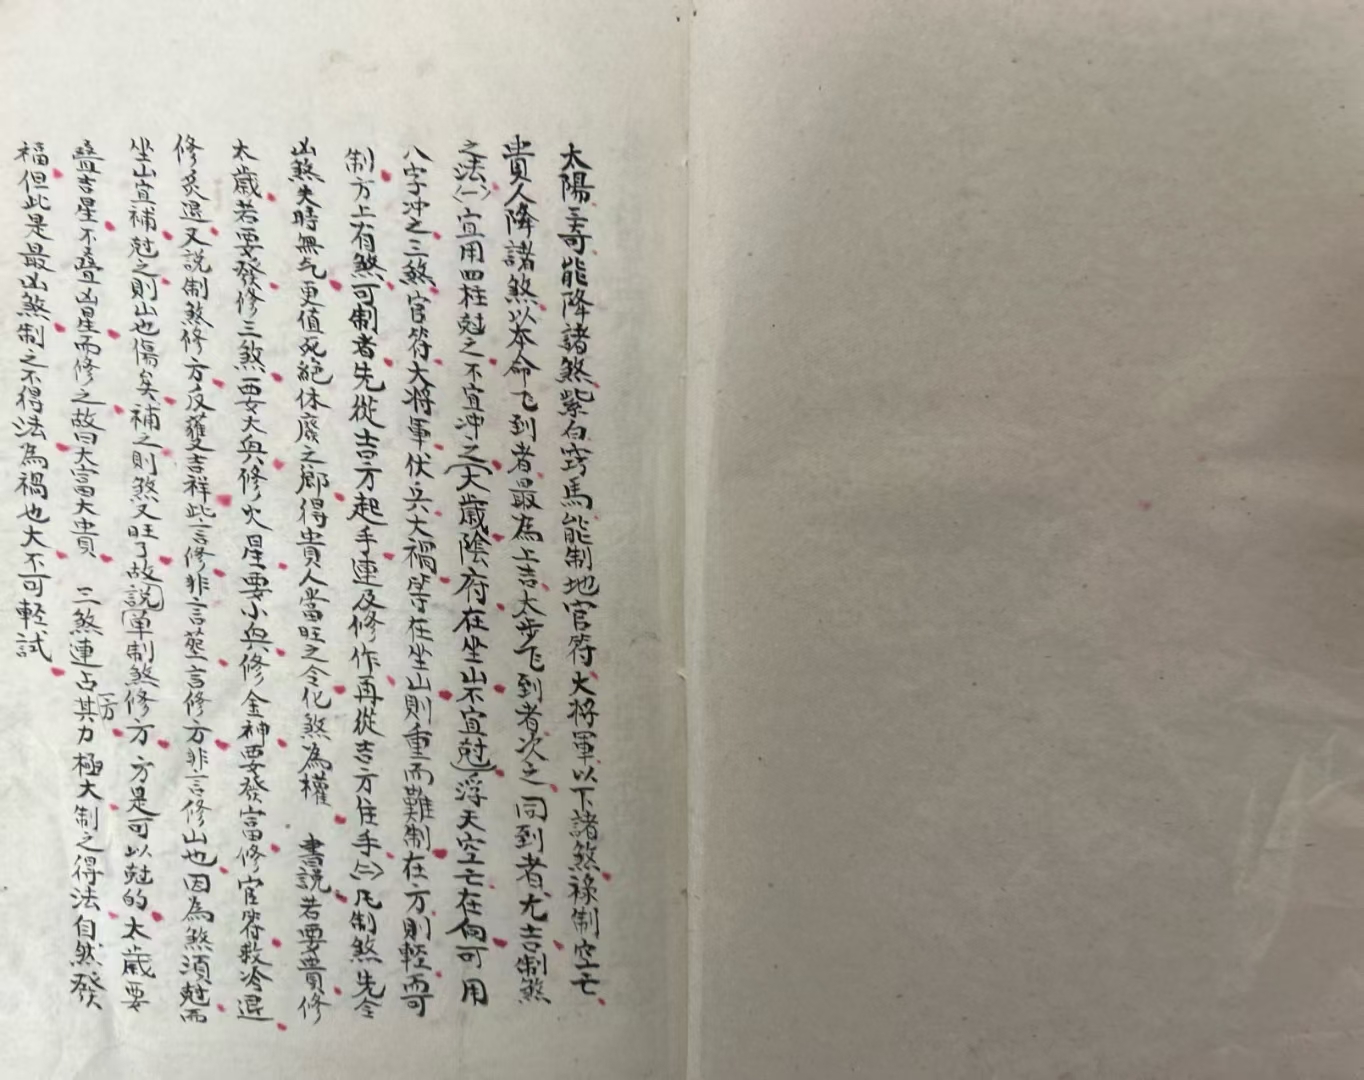 太陽三奇能降諸煞紫白竅馬能制地官符大將軍以下諸煞祿制空亡
貴人降諸煞以本命飞到者最為上吉太步飞到者次之同到者尤吉制煞
之法㈠宜用四柱尅之不宜冲之(大歲陰府在坐山不宜尅)浮天空亡在向可用
八字冲之三煞官符大將軍伏兵大禍等在坐山則重而難制在方則輕而可
制方上有煞可制者先從吉方起手連及修作再從吉方住手㈡凡制煞先令
凶煞失時無气更值死絕休廢之鄉得貴人當旺之令化煞為權 書說若要貴修
太歲若要發修三煞要大與修火星要小與修金神要發富修官符救冷退
修炙退又説制煞修方反獲吉祥此言修非言塟言修方非言修山也因為煞須尅而
坐山宜補尅之則山也傷矣補之則煞又旺了故説單制煞修方方是可以尅的太歲要
叠吉星不叠凶星而修之故曰大富大貴 三煞連占一方其力極大制之得法自然發
福但此是最凶煞制之不得法為禍也大不可輕試